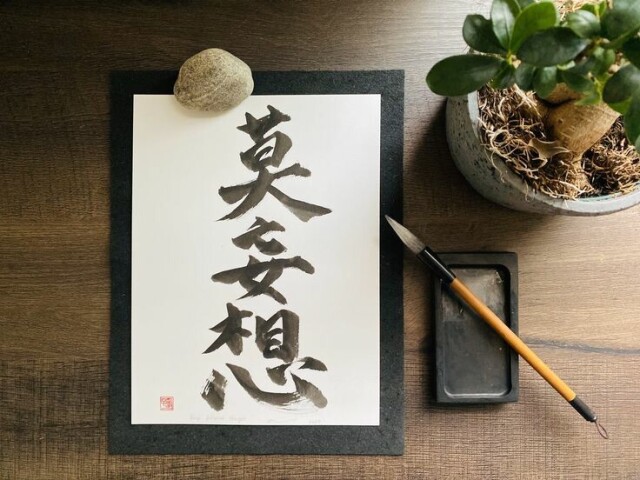 莫妄想